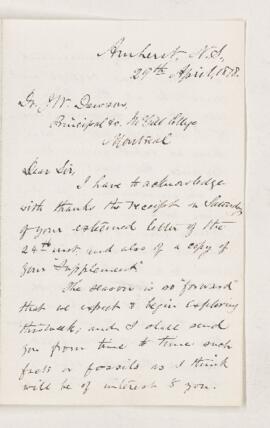 Amherst, N.S.,
29th April, 1878.
Dr. J.W. Dawson,
Principal &c. McGill College
Montreal
Dear Sir,
I have to acknowledge
with thanks the receipt on Saturday
of your esteemed letter of the
24th inst. and also of a copy of
your "Supplement"
The season is so "forward"
that we expect to begin exploring
this week, and I shall send
you from time to time such
facts or fossils as I think
will be of interest to you.